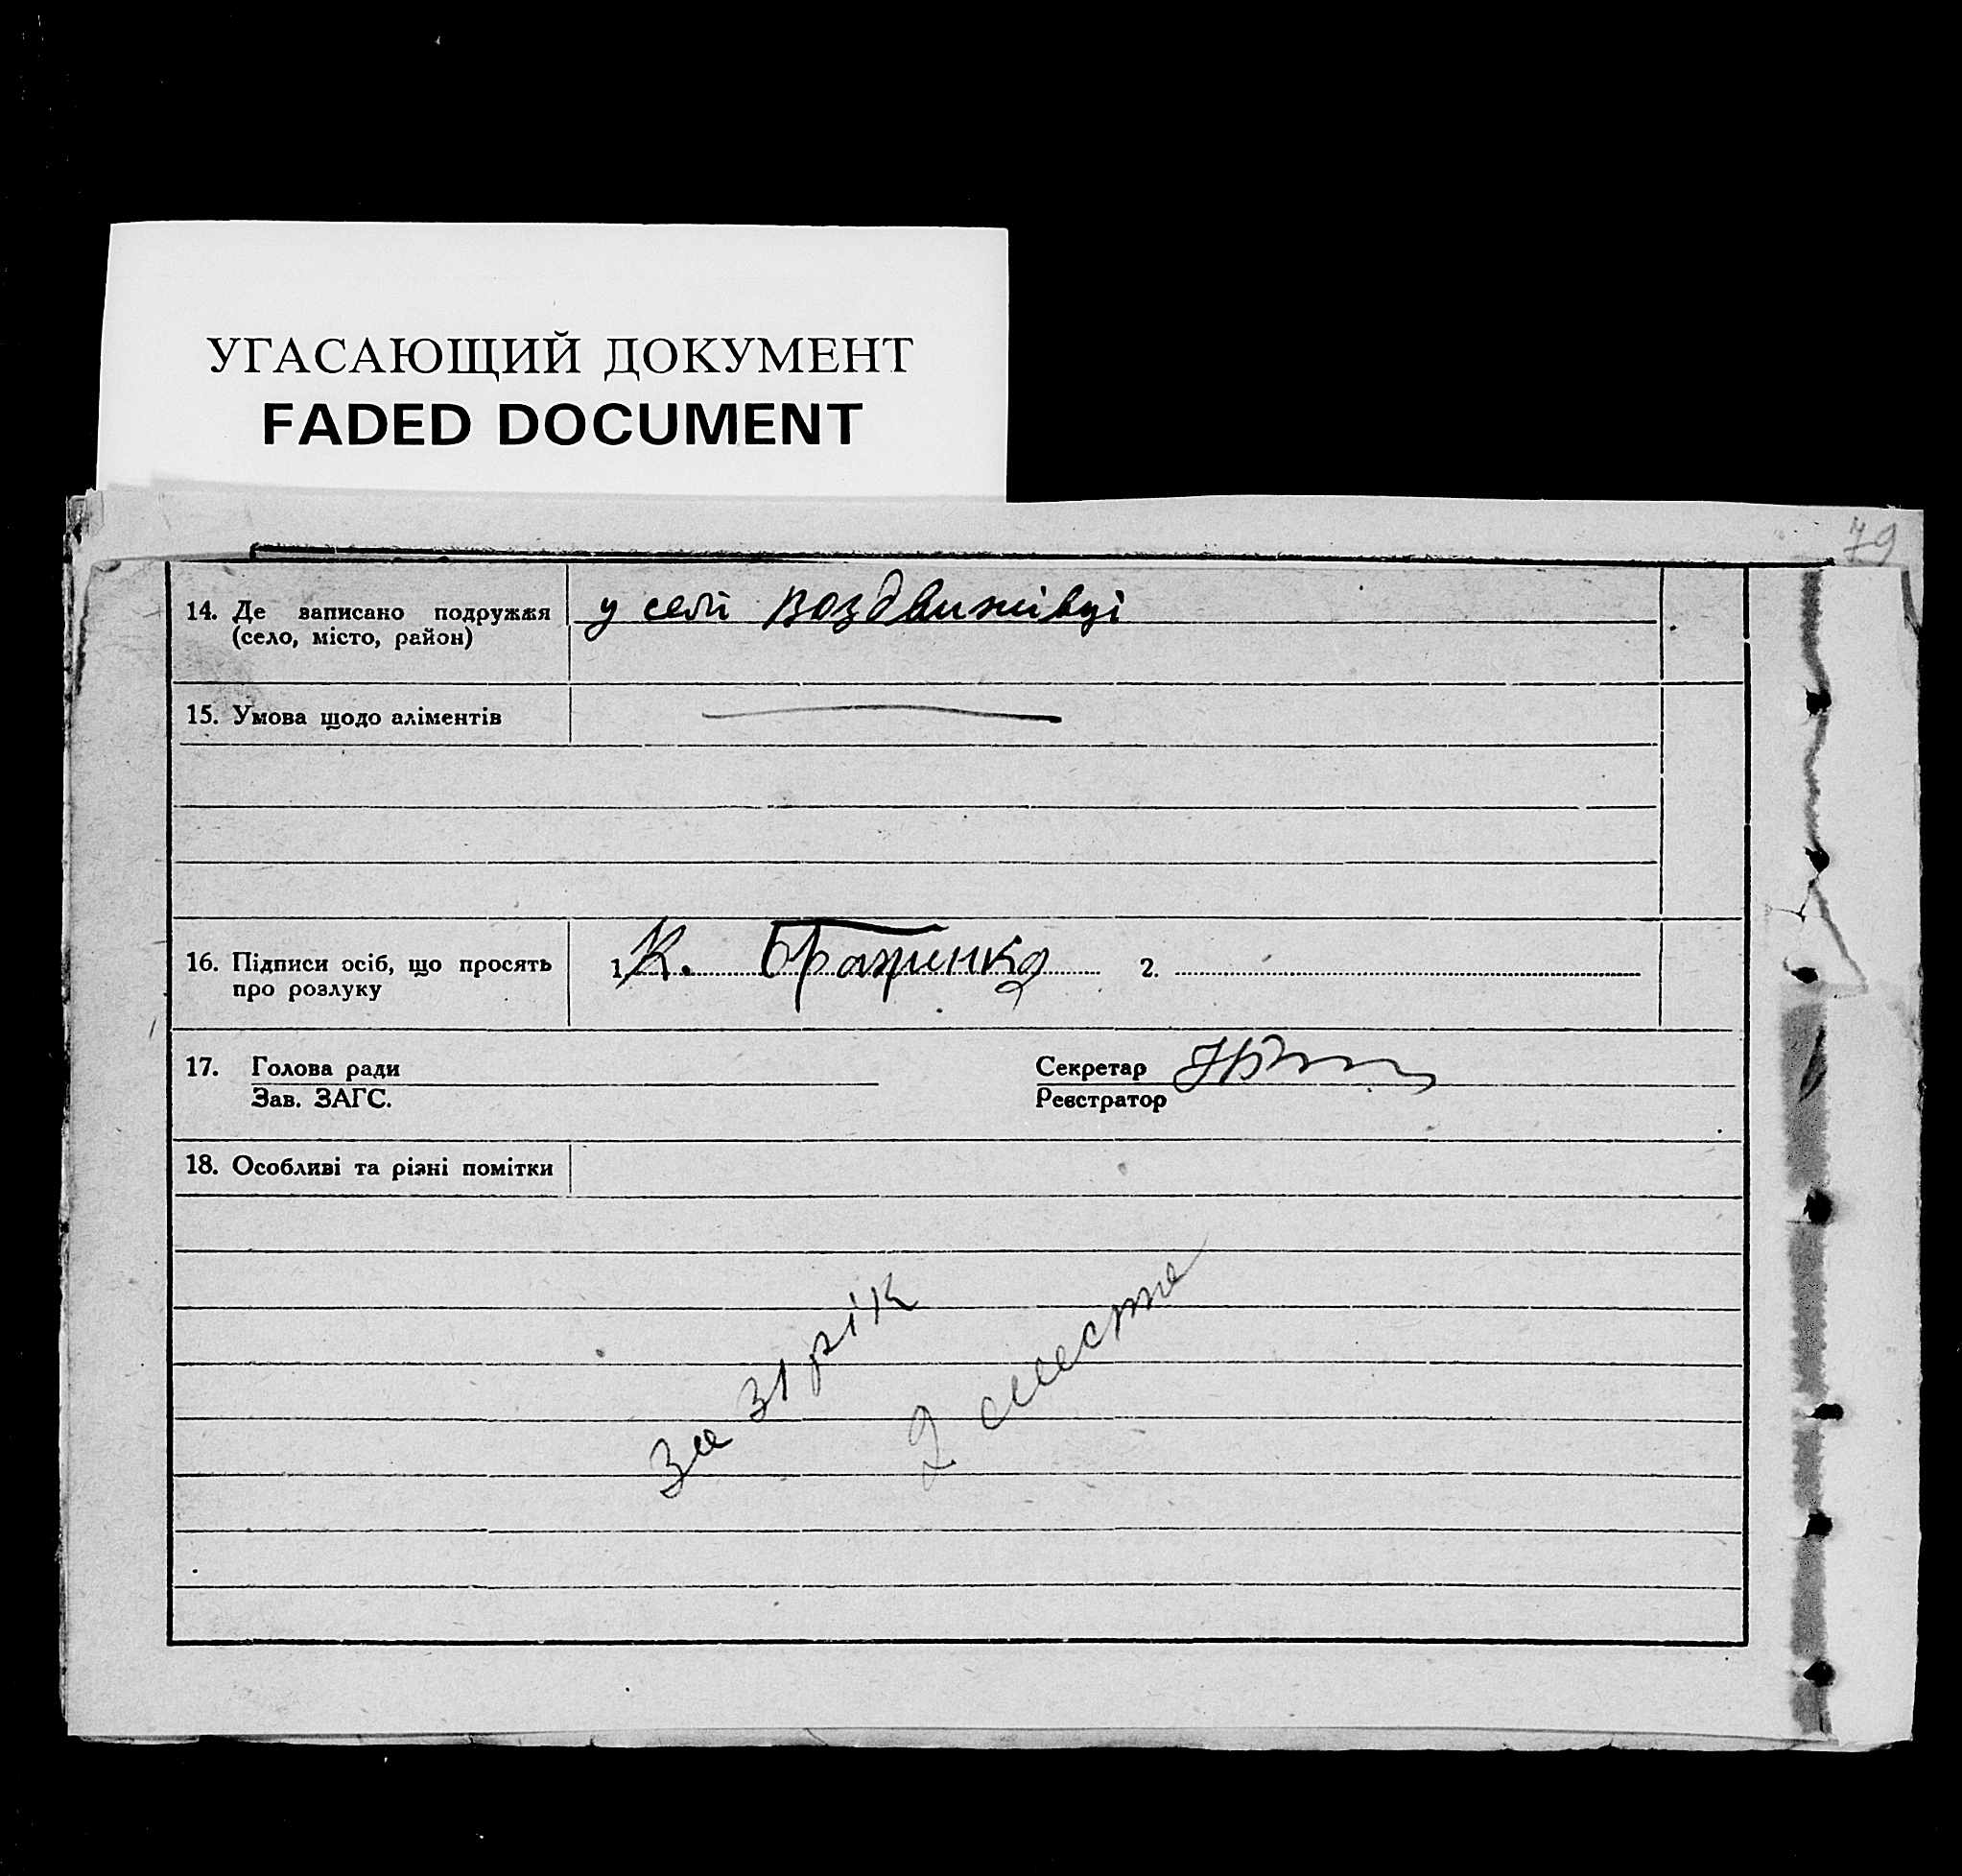 УГАСАЮЩИЙ ДОКУМЕНТ
FADED DOCUMENT
79
14. Де записано подружжя у селі Воздвижівці
(село, місто, район)
15. Умова щодо аліментів
16. Підписи осіб, що просять 1. К. 2.
про розлуку
17. Голова ради Секретар
Зав. ЗАГС. Реєстратор
18. Особливі та різні помітки
За 31 рік
2